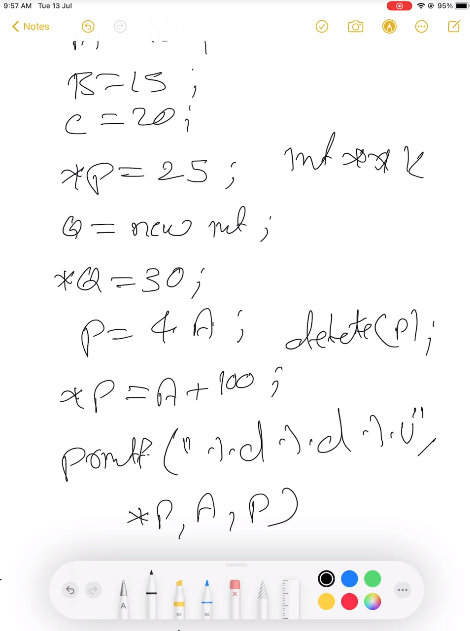 9:57 AM Tue 13 Jul
95%
Notes
B=15;
C=20;
*P=25; int **K
Q=new int;
*Q=30;
P=&A; delete(P);
*P=A+100;
printf("%d %d %u",
*P, A, P)